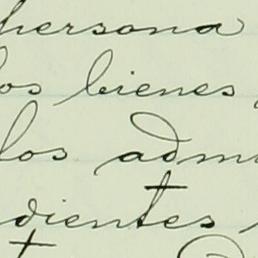 persona
los bienes
los adm
dientes